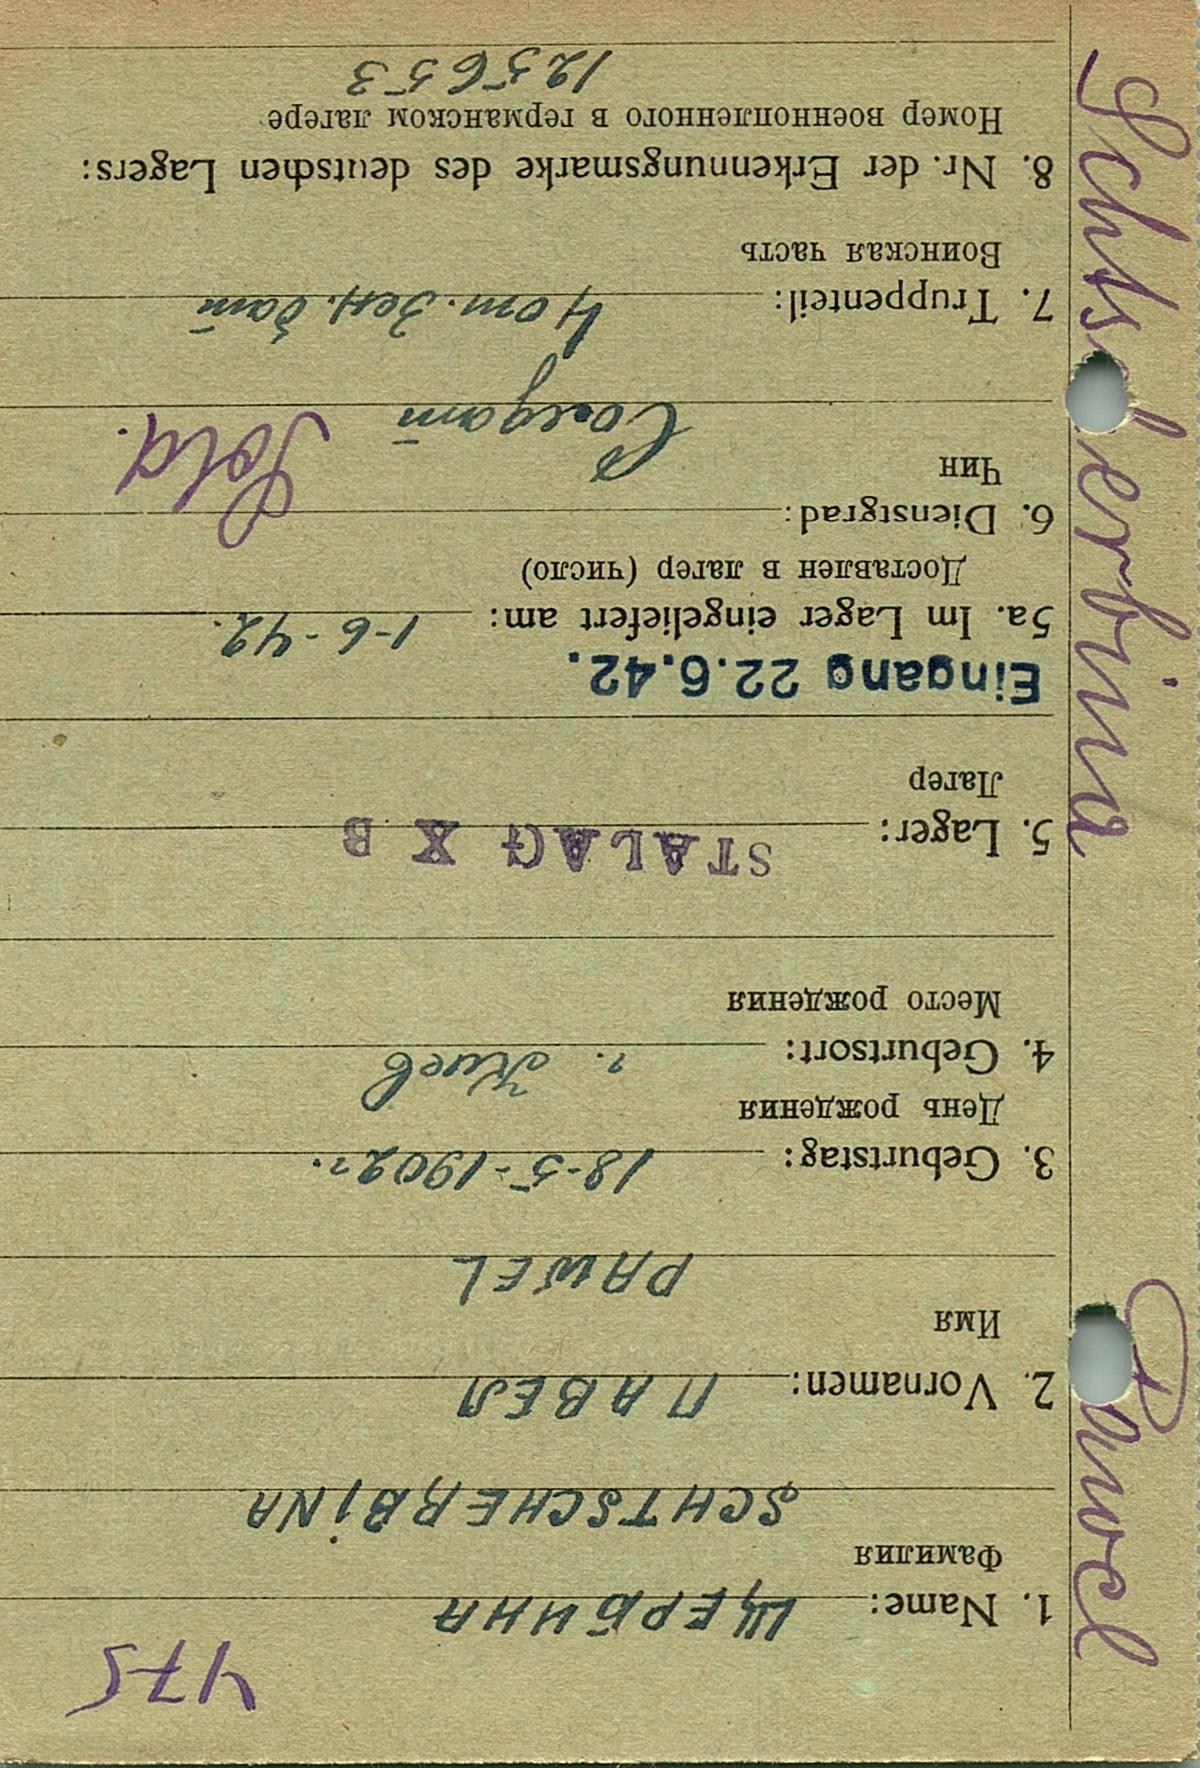 475
1. Name: ЩЕРБИНА
Фамилия
SCHTSCHERBINA
2. Vornamen: ПАВЕЛ
Имя
PAWEL
3. Geburtstag: 18-5-1902 г.
День рождения
4. Geburtsort: г. Киев
Место рождения
5. Lager: STALAG X B
Лагер
Eingang 22.6.42.
5a. Im Lager eingeliefert am: 1-6-42.
Доставлен в лагер (число)
6. Dienstgrad: Sold.
Чин Солдат
7. Truppenteil: зен. бат
Воинская часть
8. Nr. der Erkennungsmarke des deutschen Lagers:
Номер военнопленного в германском лагере
125653
Schtscherbina Pawel